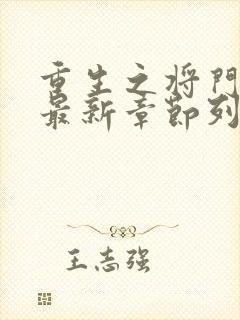 重生之将门
最新章节列
王志强